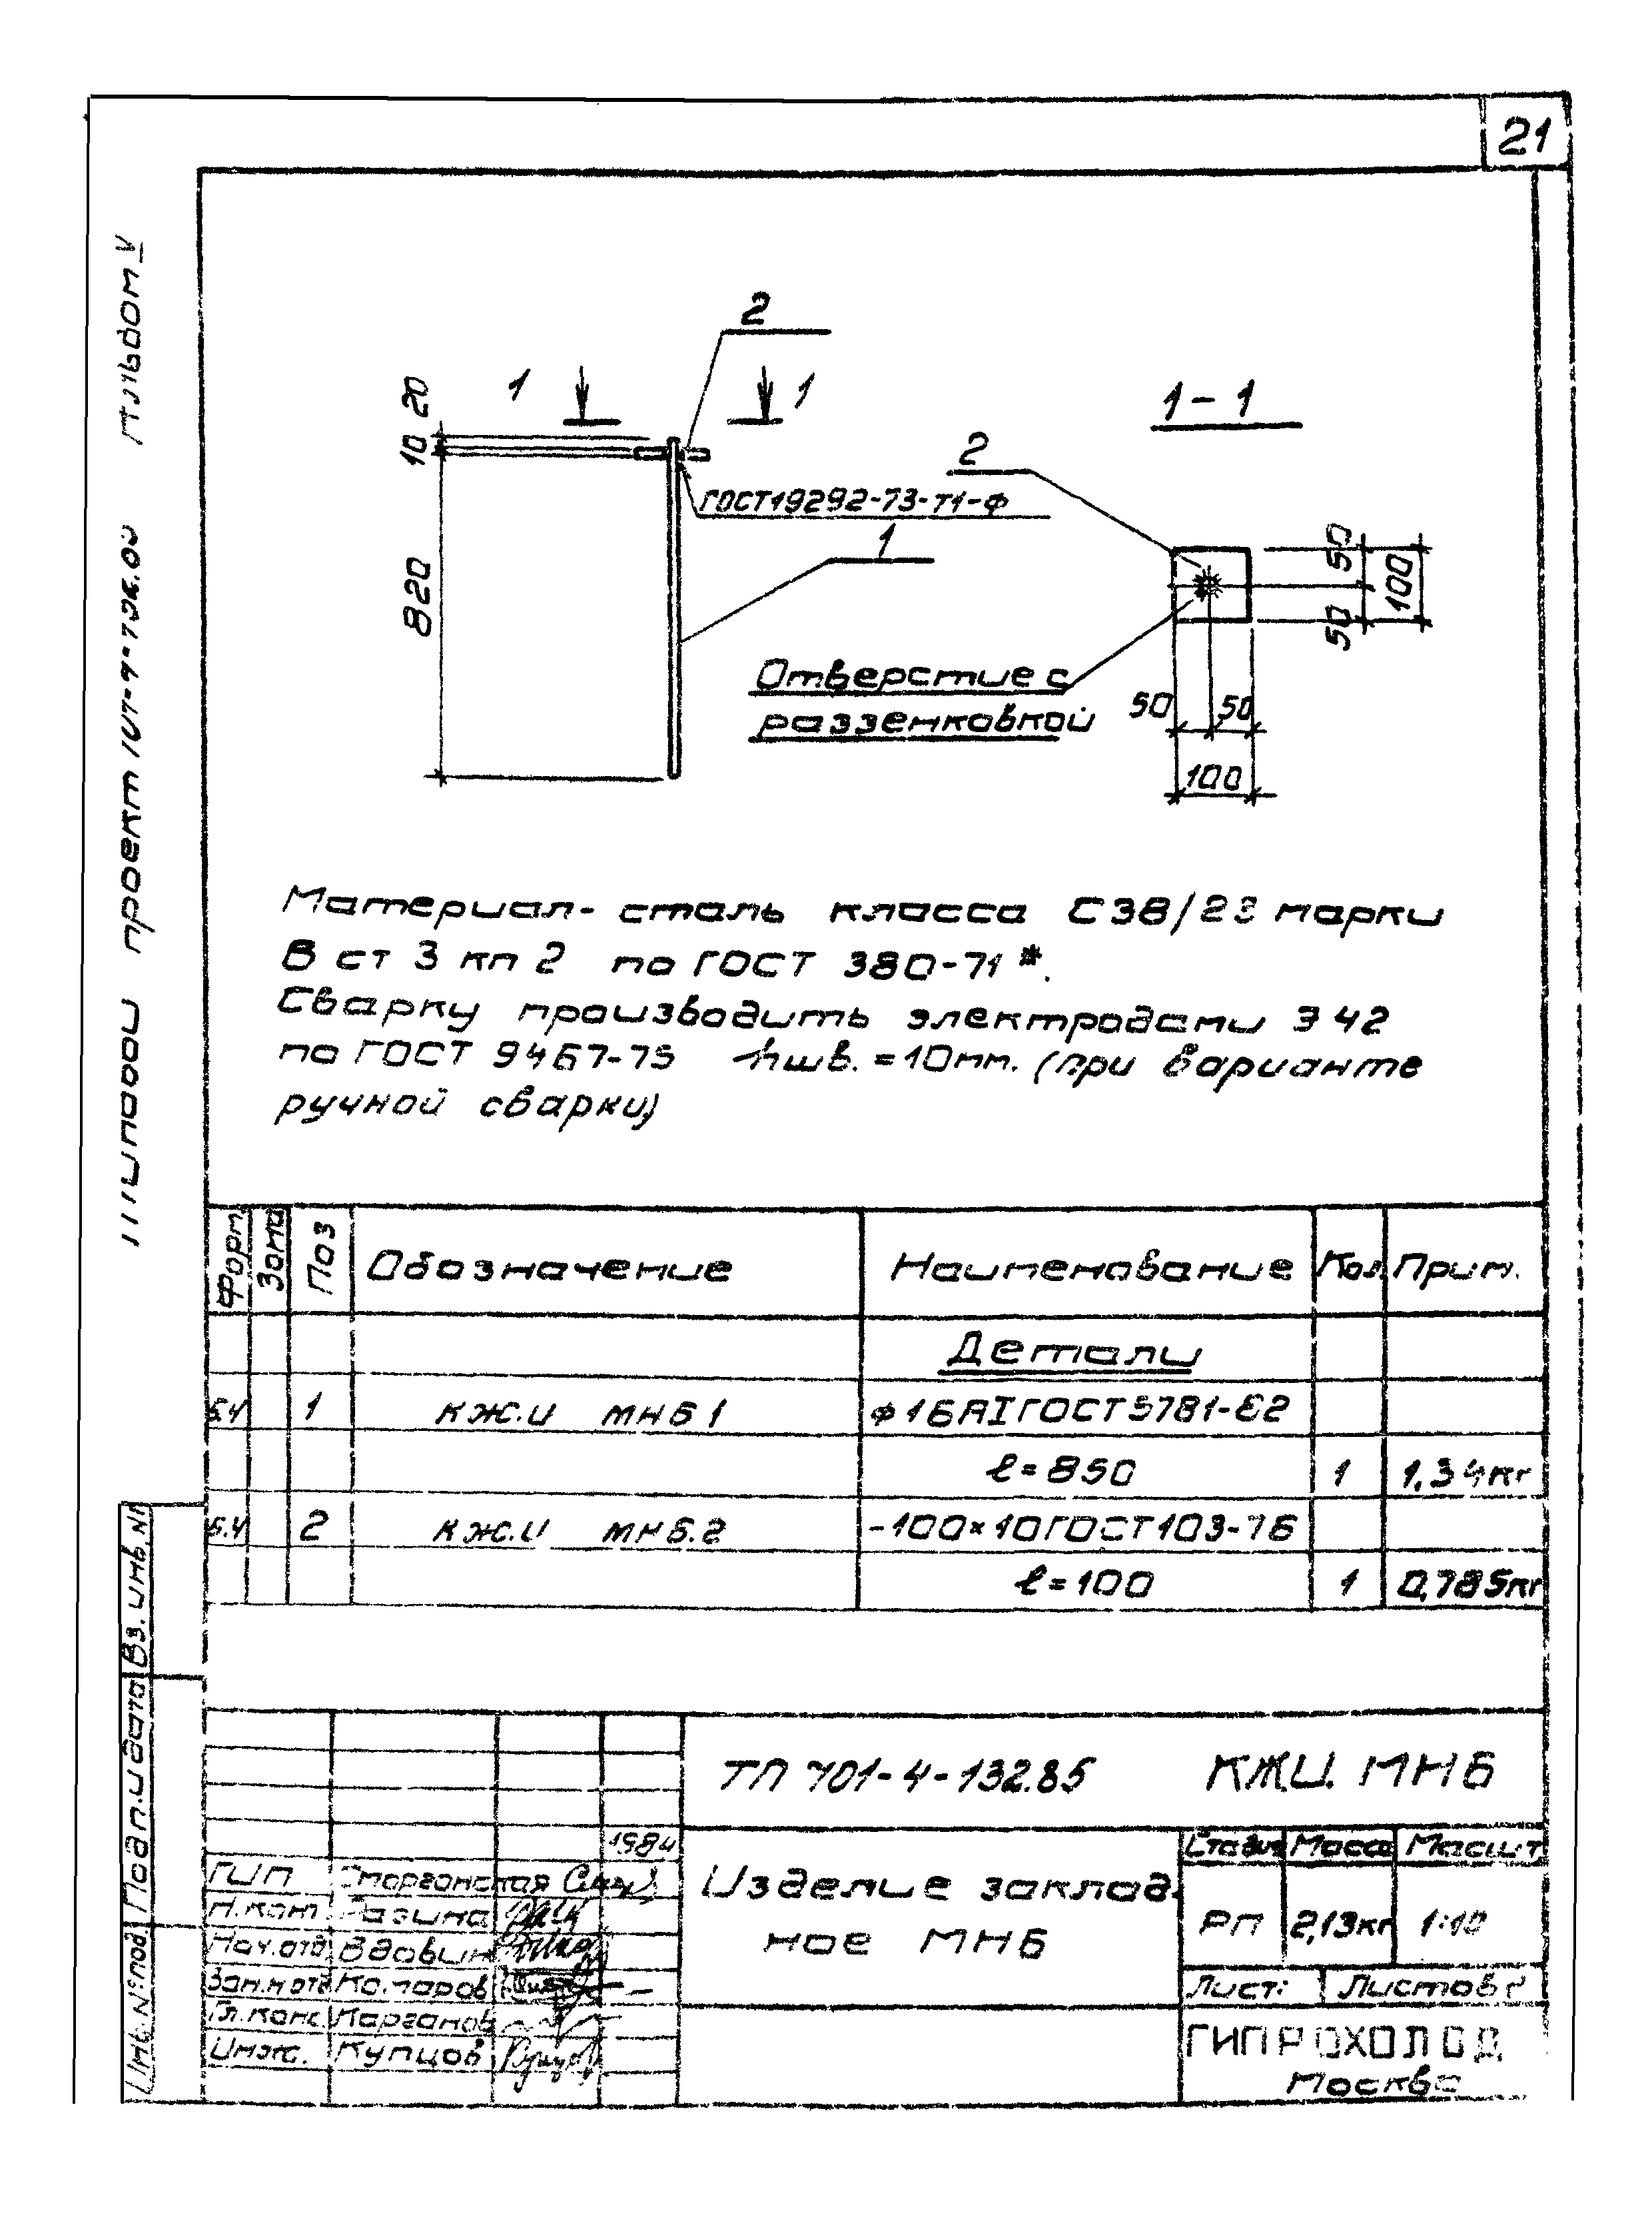 21
Альбом V
проект 701-4-132.85
Типовой
2
1 1
1-1
20
10
820
ГОСТ19292-73-Т1-Ф
1
2
Отверстие с
раззенковкой
50
50
100
50 50
100
Материал- сталь класса С38/23 марки
В ст 3 кп 2 по ГОСТ 380-71*.
Сварку производить электродами Э42
по ГОСТ 9467-75 hшв.=10мм. (при варианте
ручной сварки)
Форм. Зона Поз Обозначение Наименование Кол. Прим.
Детали
Б.Ч 1 КЖ.И МН6 1 ф16АIГОСТ5781-82
ℓ=850 1 1,34кг
Б.Ч 2 КЖ.И МН6.2 -100×10ГОСТ103-76
ℓ=100 1 0,785кг
Вз. инв. №
Подп. и дата
Инв. № под
ТП 701-4-132.85 КЖ.И. МН6
1984
ГИП Сморгонская
Н.конт Разина
Нач.отд. Вдовин
Зам.н.отд Комаров
Гл.конс. Карганов
Инж. Купцов
Изделие заклад-
ное МН6
Стадия Масса Масшт
РП 2,13кг 1:10
Лист: Листов
ГИПРОХОЛОД
Москва